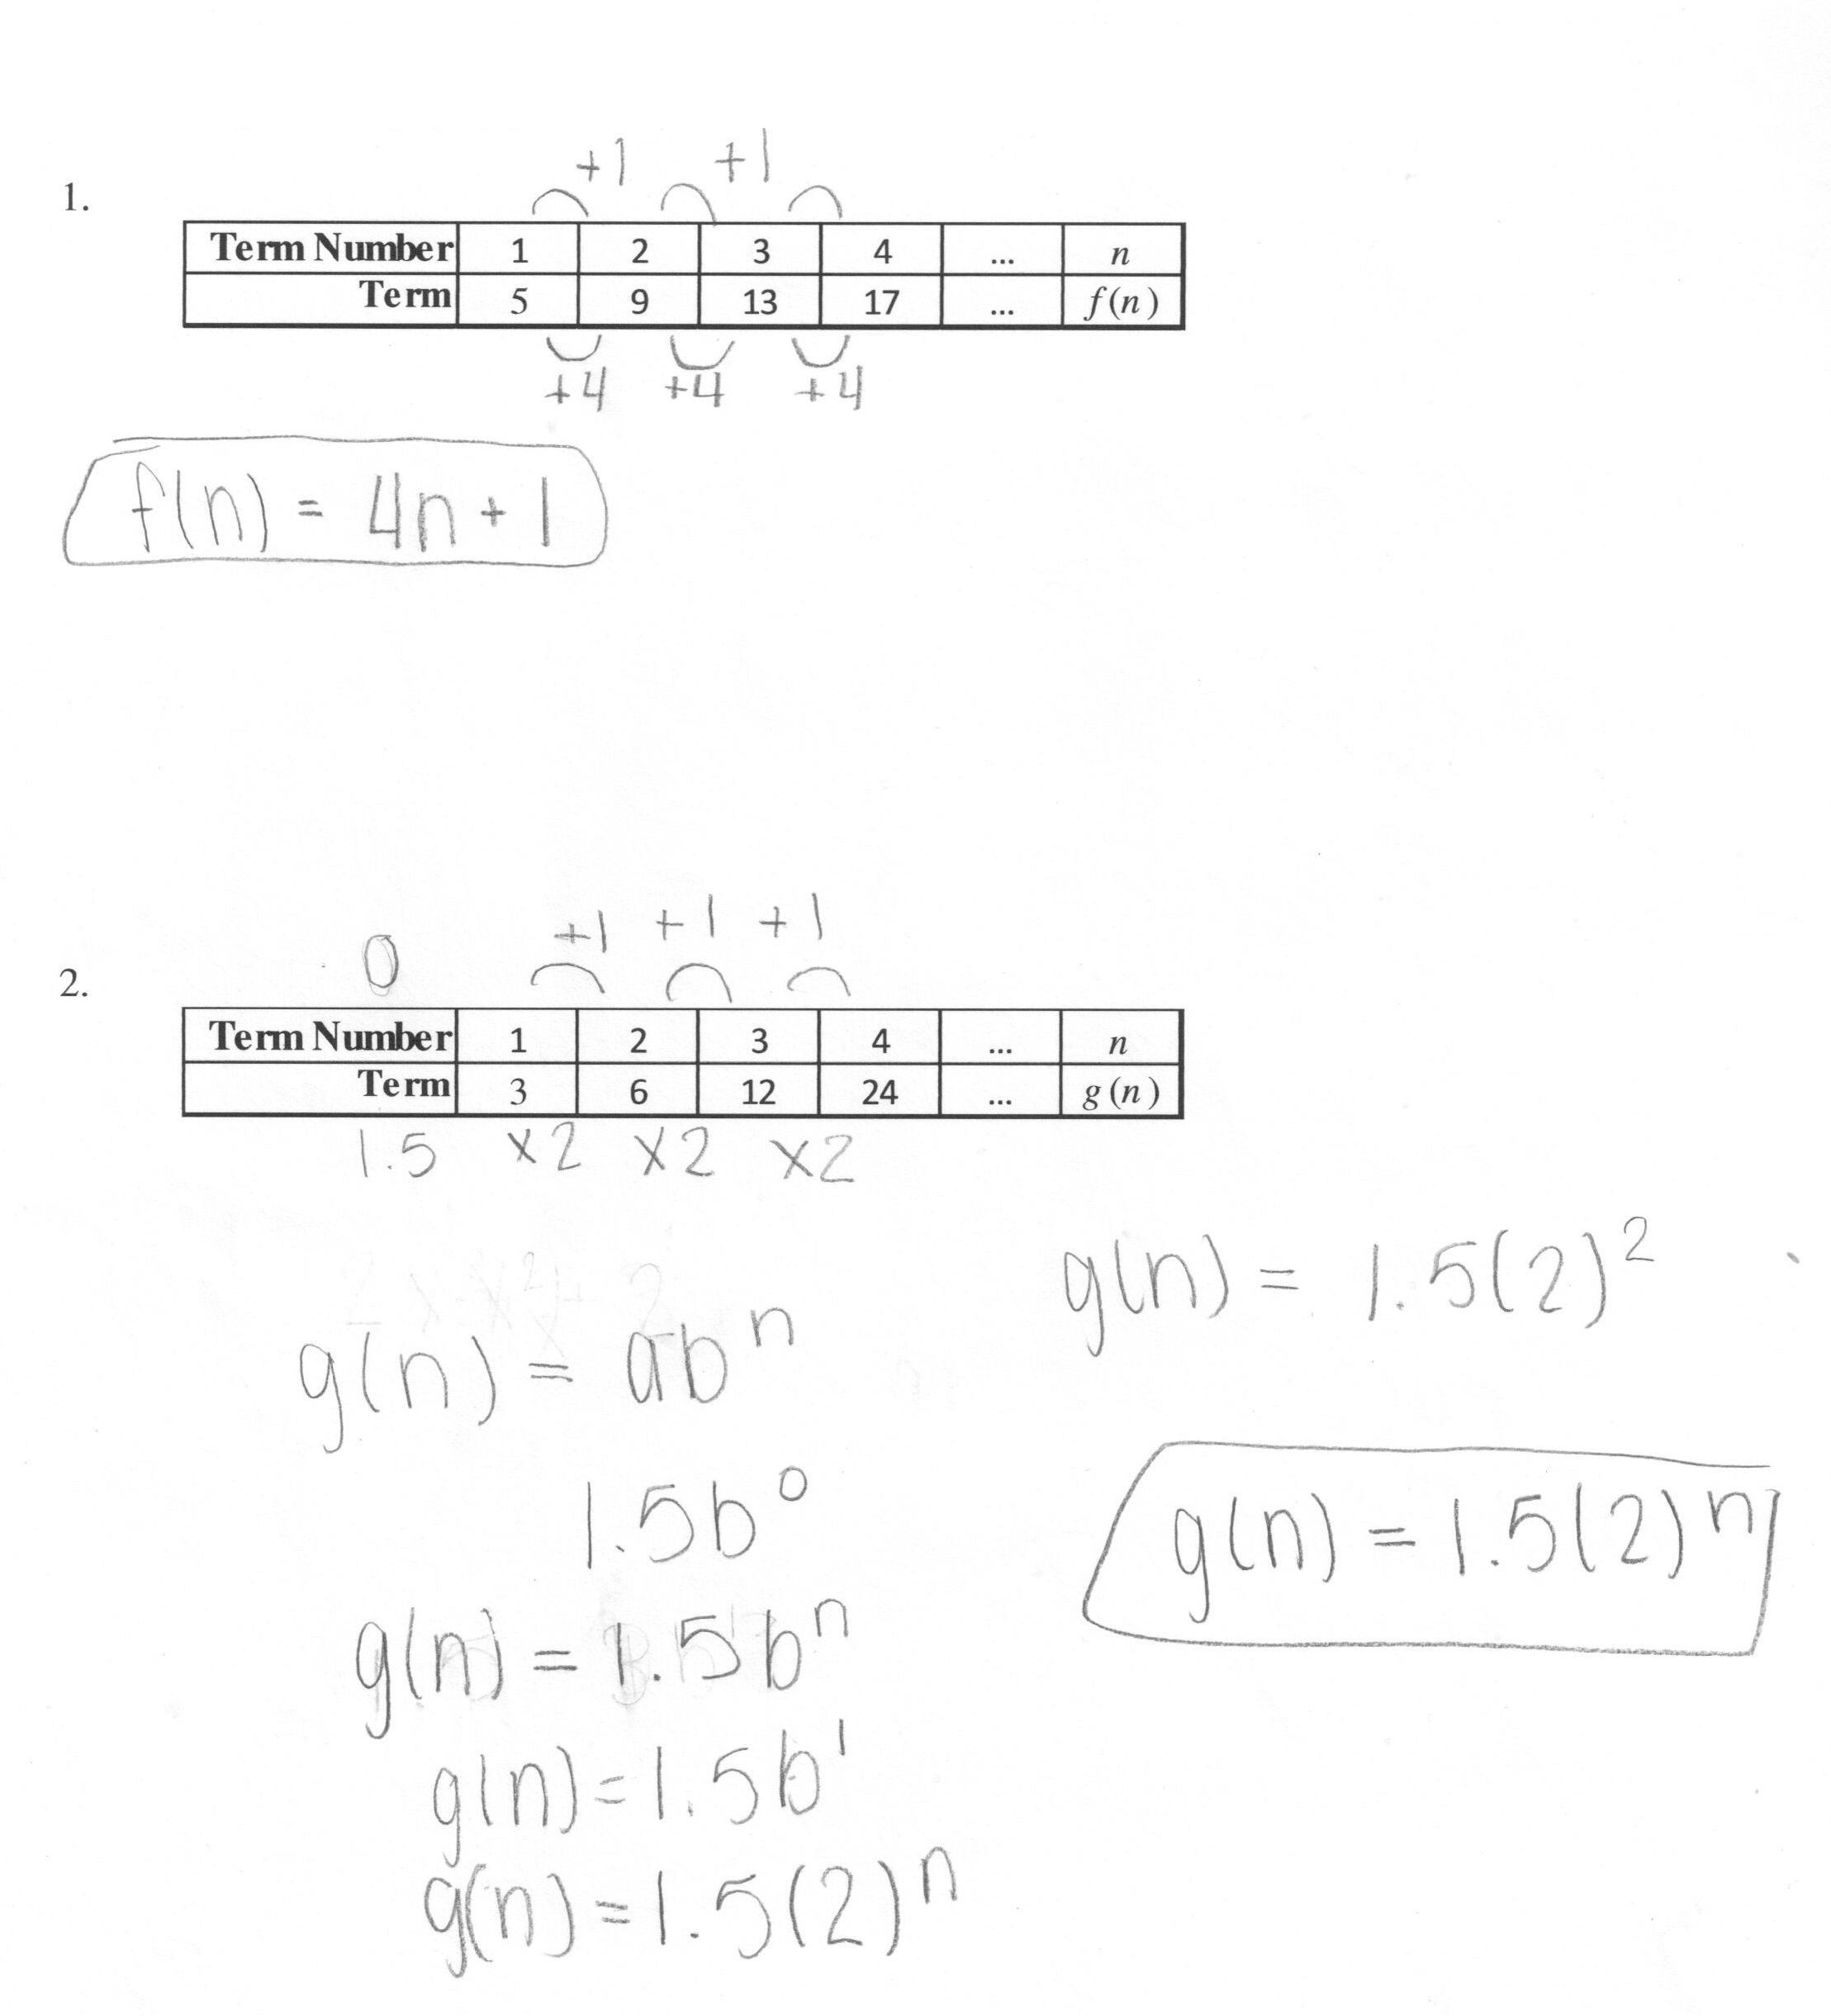 +1 +1
1.
Term Number 1 2 3 4 ... n
Term 5 9 13 17 ... f(n)
+4 +4 +4
f(n) = 4n+1
0 +1 +1 +1
2.
Term Number 1 2 3 4 ... n
Term 3 6 12 24 ... g(n)
1.5 x2 x2 x2
g(n) = abⁿ
1.5b⁰
g(n) = 1.5bⁿ
g(n) = 1.5b¹
g(n) = 1.5(2)ⁿ
g(n) = 1.5(2)²
g(n) = 1.5(2)ⁿ